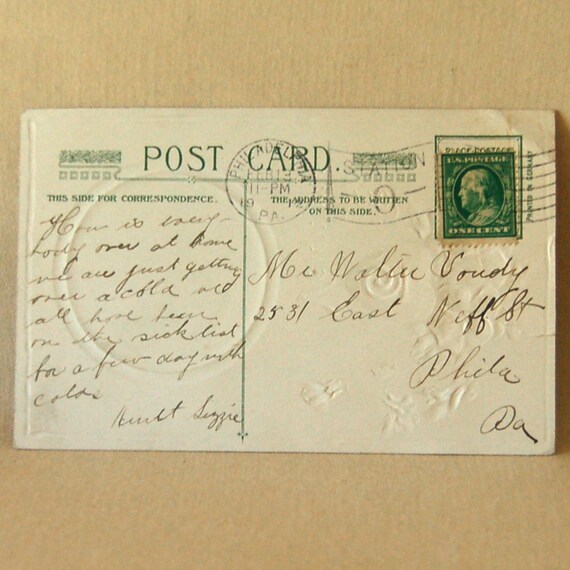 POST CARD.
THIS SIDE FOR CORRESPONDENCE.
THE ADDRESS TO BE WRITTEN
ON THIS SIDE.
PHILADELPHIA
FEB 13
11-PM
PA.
STATION
O
PLACE POSTAGE
U.S. POSTAGE
ONE CENT
PRINTED IN GERMANY
How is every-
body over at home
we are just getting
over a cold we
all have been
on the sick list
for a few day with
colds
Aunt Lizzie
Mr Walter Voudy
2531 East Neff St
Phila
Pa